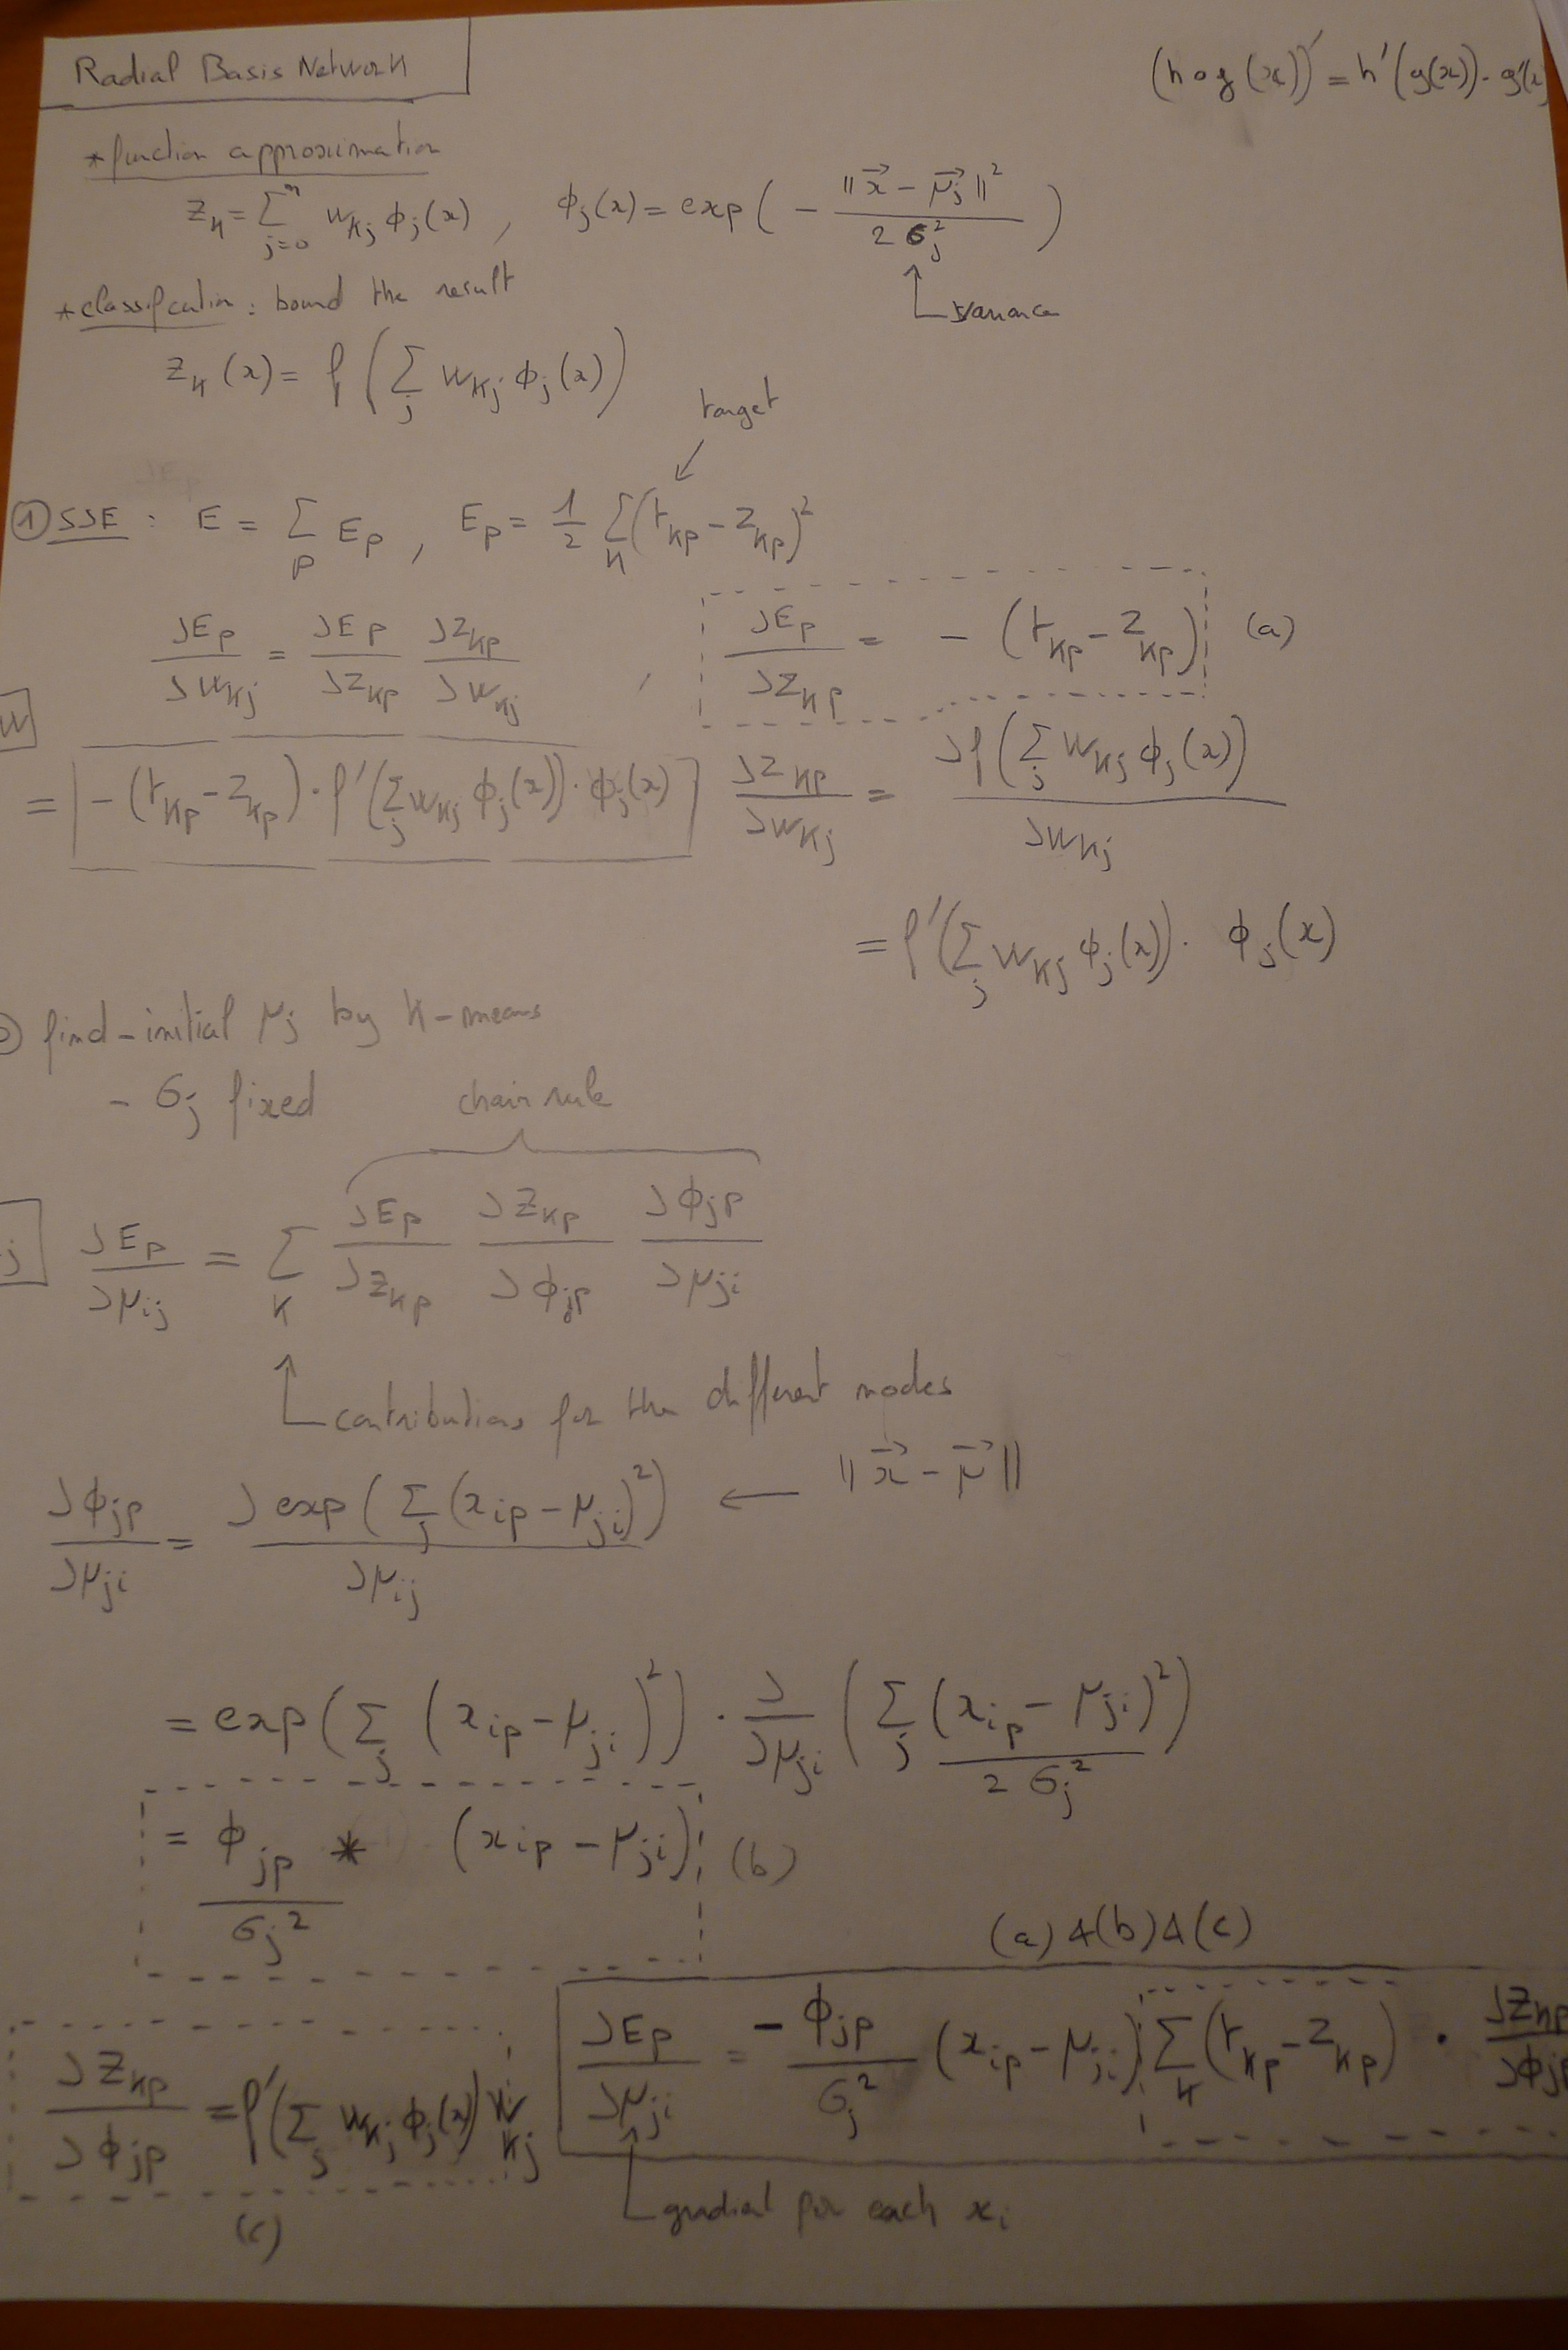 Radial Basis Network
(h o g(x))' = h'(g(x)) · g'(x
* function approximation
z_k = Σ_{j=0}^{n} w_kj ϕ_j(x) , ϕ_j(x) = exp( - ||x⃗ - μ⃗_j||² / 2σ_j² )
variance
* classification : bound the result
z_k(x) = f( Σ_j w_kj ϕ_j(x) )
target
① SSE : E = Σ_p E_p , E_p = 1/2 Σ_k (t_kp - z_kp)²
∂E_p/∂w_kj = ∂E_p/∂z_kp ∂z_kp/∂w_kj , ∂E_p/∂z_kp = - (t_kp - z_kp) (a)
w
= - (t_kp - z_kp) · f'(Σ_j w_kj ϕ_j(x)) · ϕ_j(x)
∂z_kp/∂w_kj = ∂f(Σ_j w_kj ϕ_j(x)) / ∂w_kj
= f'(Σ_j w_kj ϕ_j(x)) · ϕ_j(x)
find-initial μ_j by k-means
- σ_j fixed
chain rule
j
∂E_p/∂μ_ij = Σ_k ∂E_p/∂z_kp ∂z_kp/∂ϕ_jp ∂ϕ_jp/∂μ_ji
contributions for the different nodes
∂ϕ_jp/∂μ_ji = ∂ exp( Σ_j (x_ip - μ_ji)² ) / ∂μ_ij ← ||x⃗ - μ⃗||
= exp( Σ_j (x_ip - μ_ji)² ) · ∂/∂μ_ji ( Σ_j (x_ip - μ_ji)² / 2σ_j² )
= ϕ_jp / σ_j² * (x_ip - μ_ji) (b)
(a) Δ (b) Δ (c)
∂z_kp/∂ϕ_jp = f'(Σ_j w_kj ϕ_j(x)) w_kj
(c)
∂E_p/∂μ_ji = - ϕ_jp/σ_j² (x_ip - μ_ji) Σ_k (t_kp - z_kp) · ∂z_kp/∂ϕ_j
gradial for each x_i